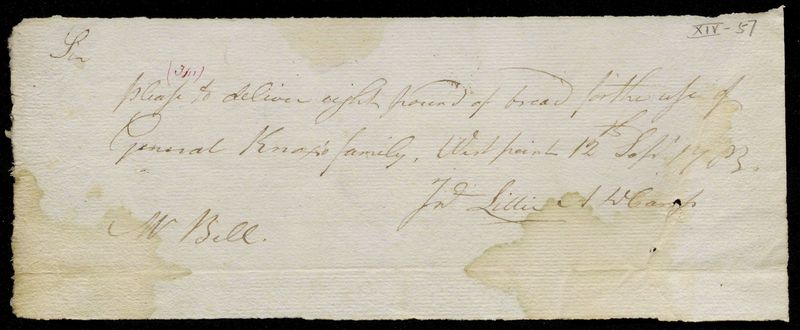 XIV - 57
Sir
(Im)
please to deliver eight pound of bread for the use of
General Knox's family, West point 12th Sept 1783.
Jno Lillie A D Camp
Mr Bell.